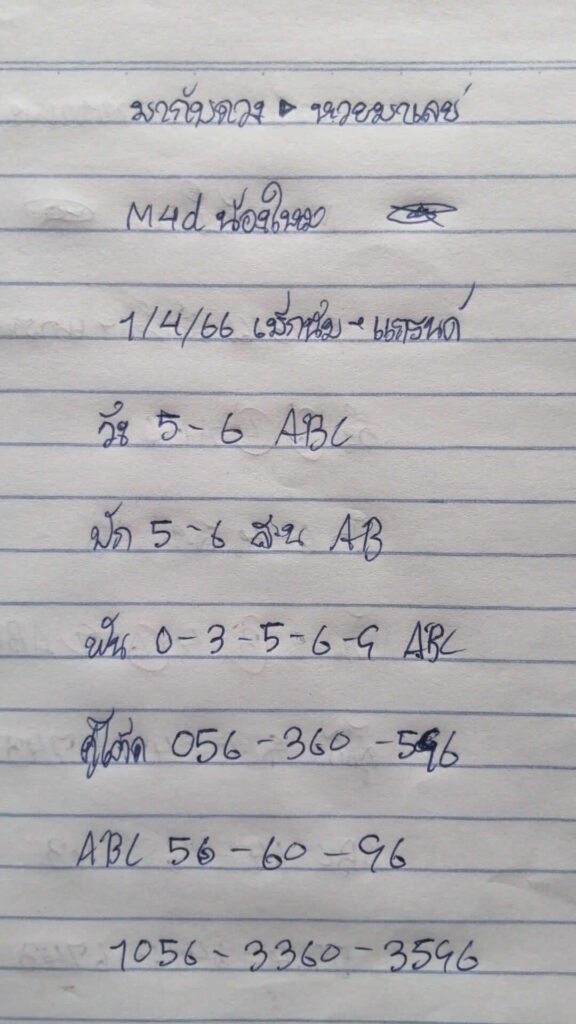 มากับดวง ▶ หวยมาเลย์
M4d น้องใหม่
1/4/66 แม็กนั่ม - แกรนด์
วิ่ง 5 - 6 ABC
ปัก 5 - 6 สน AB
ฟัน 0 - 3 - 5 - 6 - 9 ABC
คู่โต๊ด 056 - 360 - 596
ABC 56 - 60 - 96
1056 - 3360 - 3596